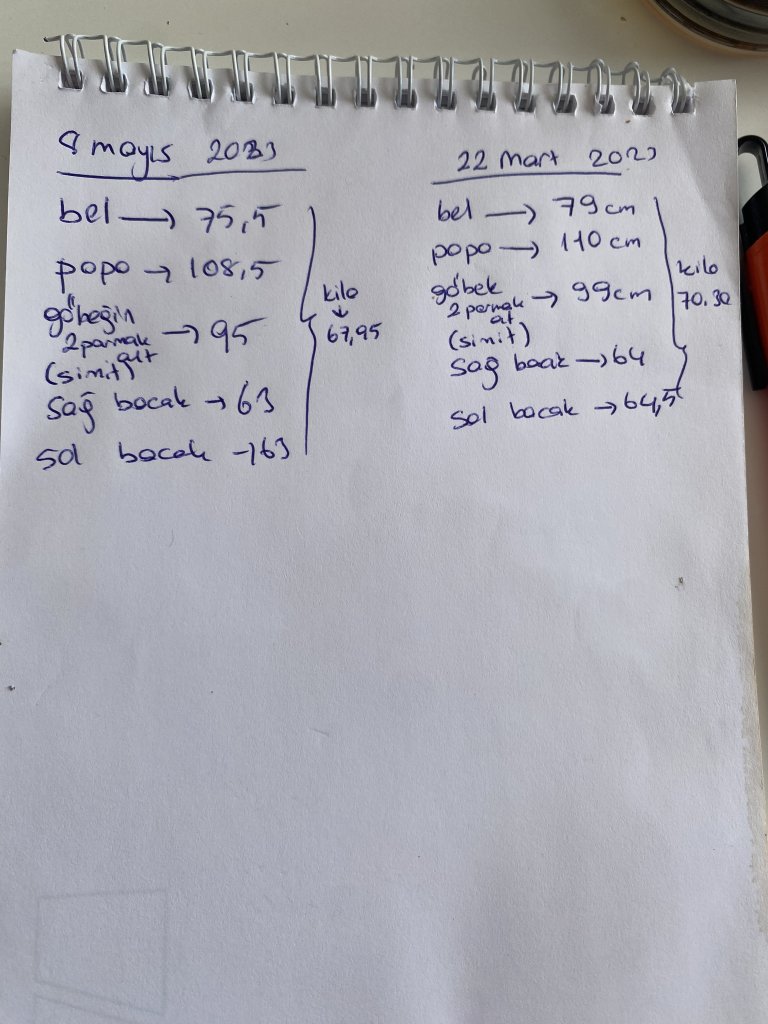 8 mayıs 2023
bel → 75,5
popo → 108,5
göbeğin
2 parmak → 95
alt
(simit)
sağ bacak → 63
sol bacak → 63
kilo
↓
67,95
22 Mart 2023
bel → 79 cm
popo → 110 cm
göbek
2 parmak → 99 cm
alt
(simit)
sağ bacak → 64
sol bacak → 64,5
kilo
70.30